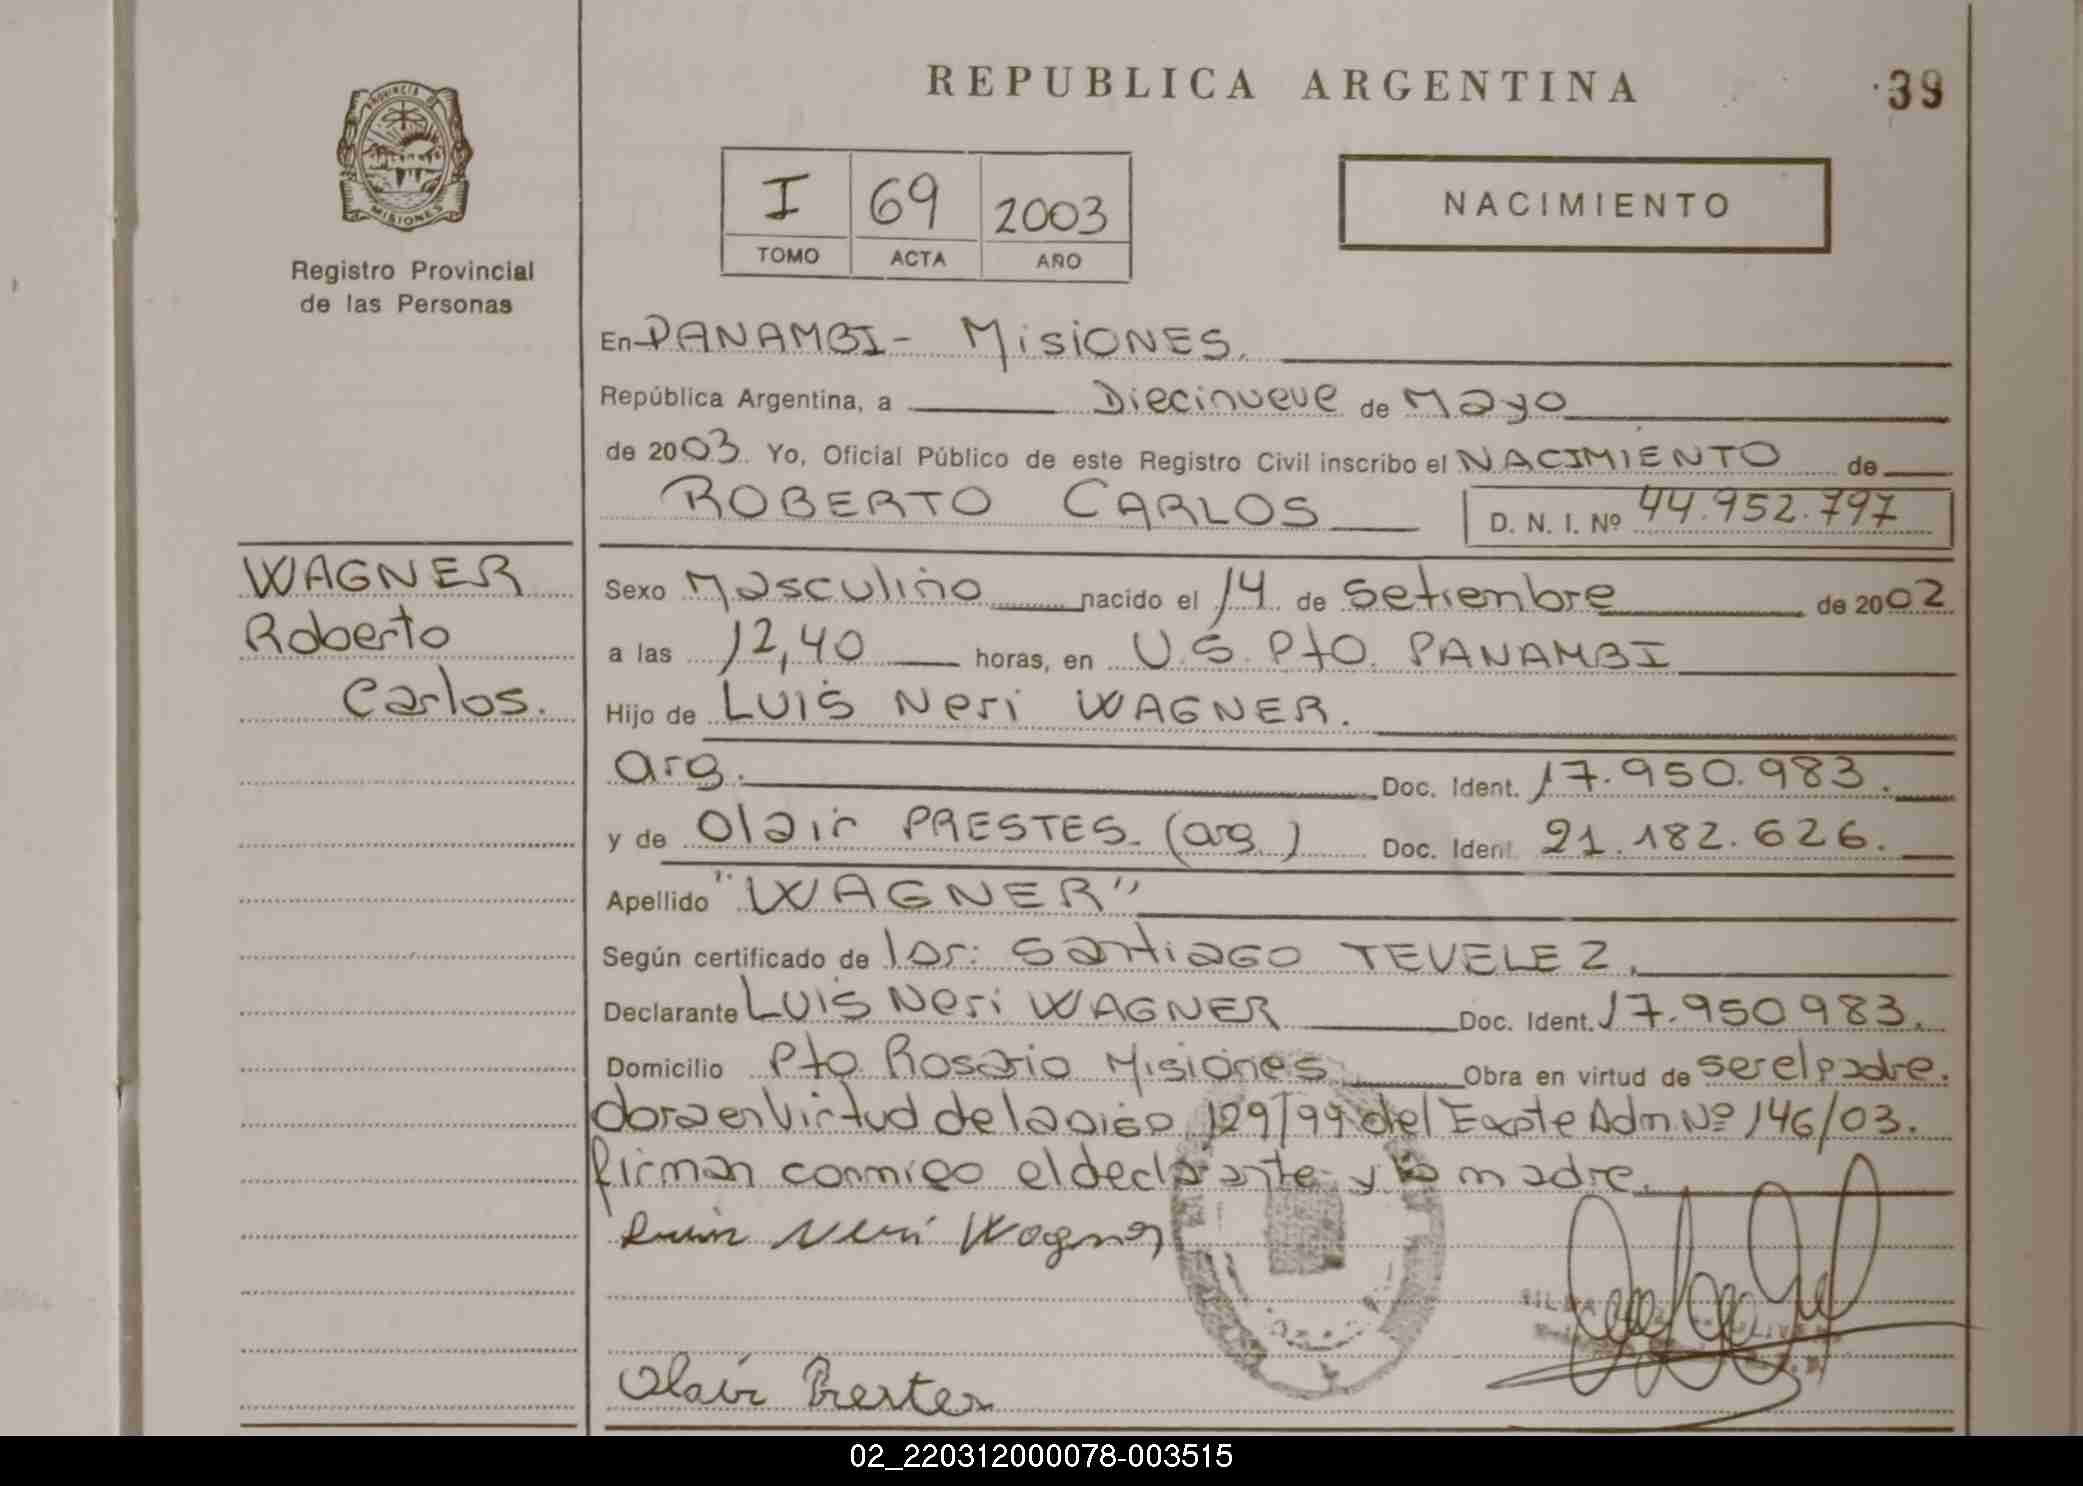 REPUBLICA ARGENTINA
39
PROVINCIA DE
MISIONES
Registro Provincial
de las Personas
I 69 2003
TOMO ACTA AÑO
NACIMIENTO
En PANAMBI - MisiONES.
República Argentina, a Diecinueve de Mayo
de 2003. Yo, Oficial Público de este Registro Civil inscribo el NACIMIENTO de
ROBERTO CARLOS D. N. I. Nº 44.952.797
WAGNER
Roberto
Carlos.
Sexo Masculino nacido el 14 de Setiembre de 2002
a las 12,40 horas, en U.S. Pto. PANAMBI
Hijo de LUIS Neri WAGNER.
arg. Doc. Ident. 17.950.983.
y de Olair PRESTES. (arg.) Doc. Ident. 21.182.626.
Apellido "WAGNER"
Según certificado de Santiago TEVELEZ.
Declarante LUIS Neri WAGNER Doc. Ident. 17.950983.
Domicilio Pto Rosario Misiones Obra en virtud de ser el padre.
en virtud de la 129/99 del Expte Adm Nº 146/03.
firman conmigo el declarante y la madre.
Luis Neri Wagner
Olair Prestes
02_220312000078-003515